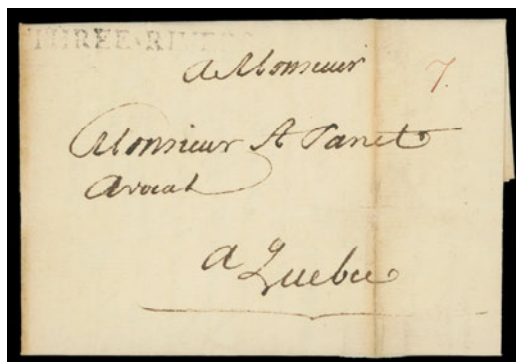 THREE-RIVERS
a Monsieur
7.
Monsieur A Panet
Avocat
a Quebec